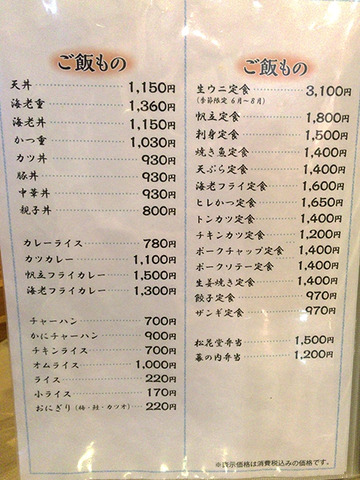 ご飯もの
天丼 1,150円
海老重 1,360円
海老丼 1,150円
かつ重 1,030円
カツ丼 930円
豚丼 930円
中華丼 930円
親子丼 800円
カレーライス 780円
カツカレー 1,100円
帆立フライカレー 1,500円
海老フライカレー 1,300円
チャーハン 700円
かにチャーハン 900円
チキンライス 700円
オムライス 1,000円
ライス 220円
小ライス 170円
おにぎり(梅・鮭・カツオ) 220円
ご飯もの
生ウニ定食 3,100円
(季節限定 6月~8月)
帆立定食 1,800円
刺身定食 1,500円
焼き魚定食 1,400円
天ぷら定食 1,400円
海老フライ定食 1,600円
ヒレかつ定食 1,650円
トンカツ定食 1,400円
チキンカツ定食 1,200円
ポークチャップ定食 1,400円
ポークソテー定食 1,400円
生姜焼き定食 1,400円
餃子定食 970円
ザンギ定食 970円
松花堂弁当 1,500円
幕の内弁当 1,200円
※表示価格は消費税込みの価格です。